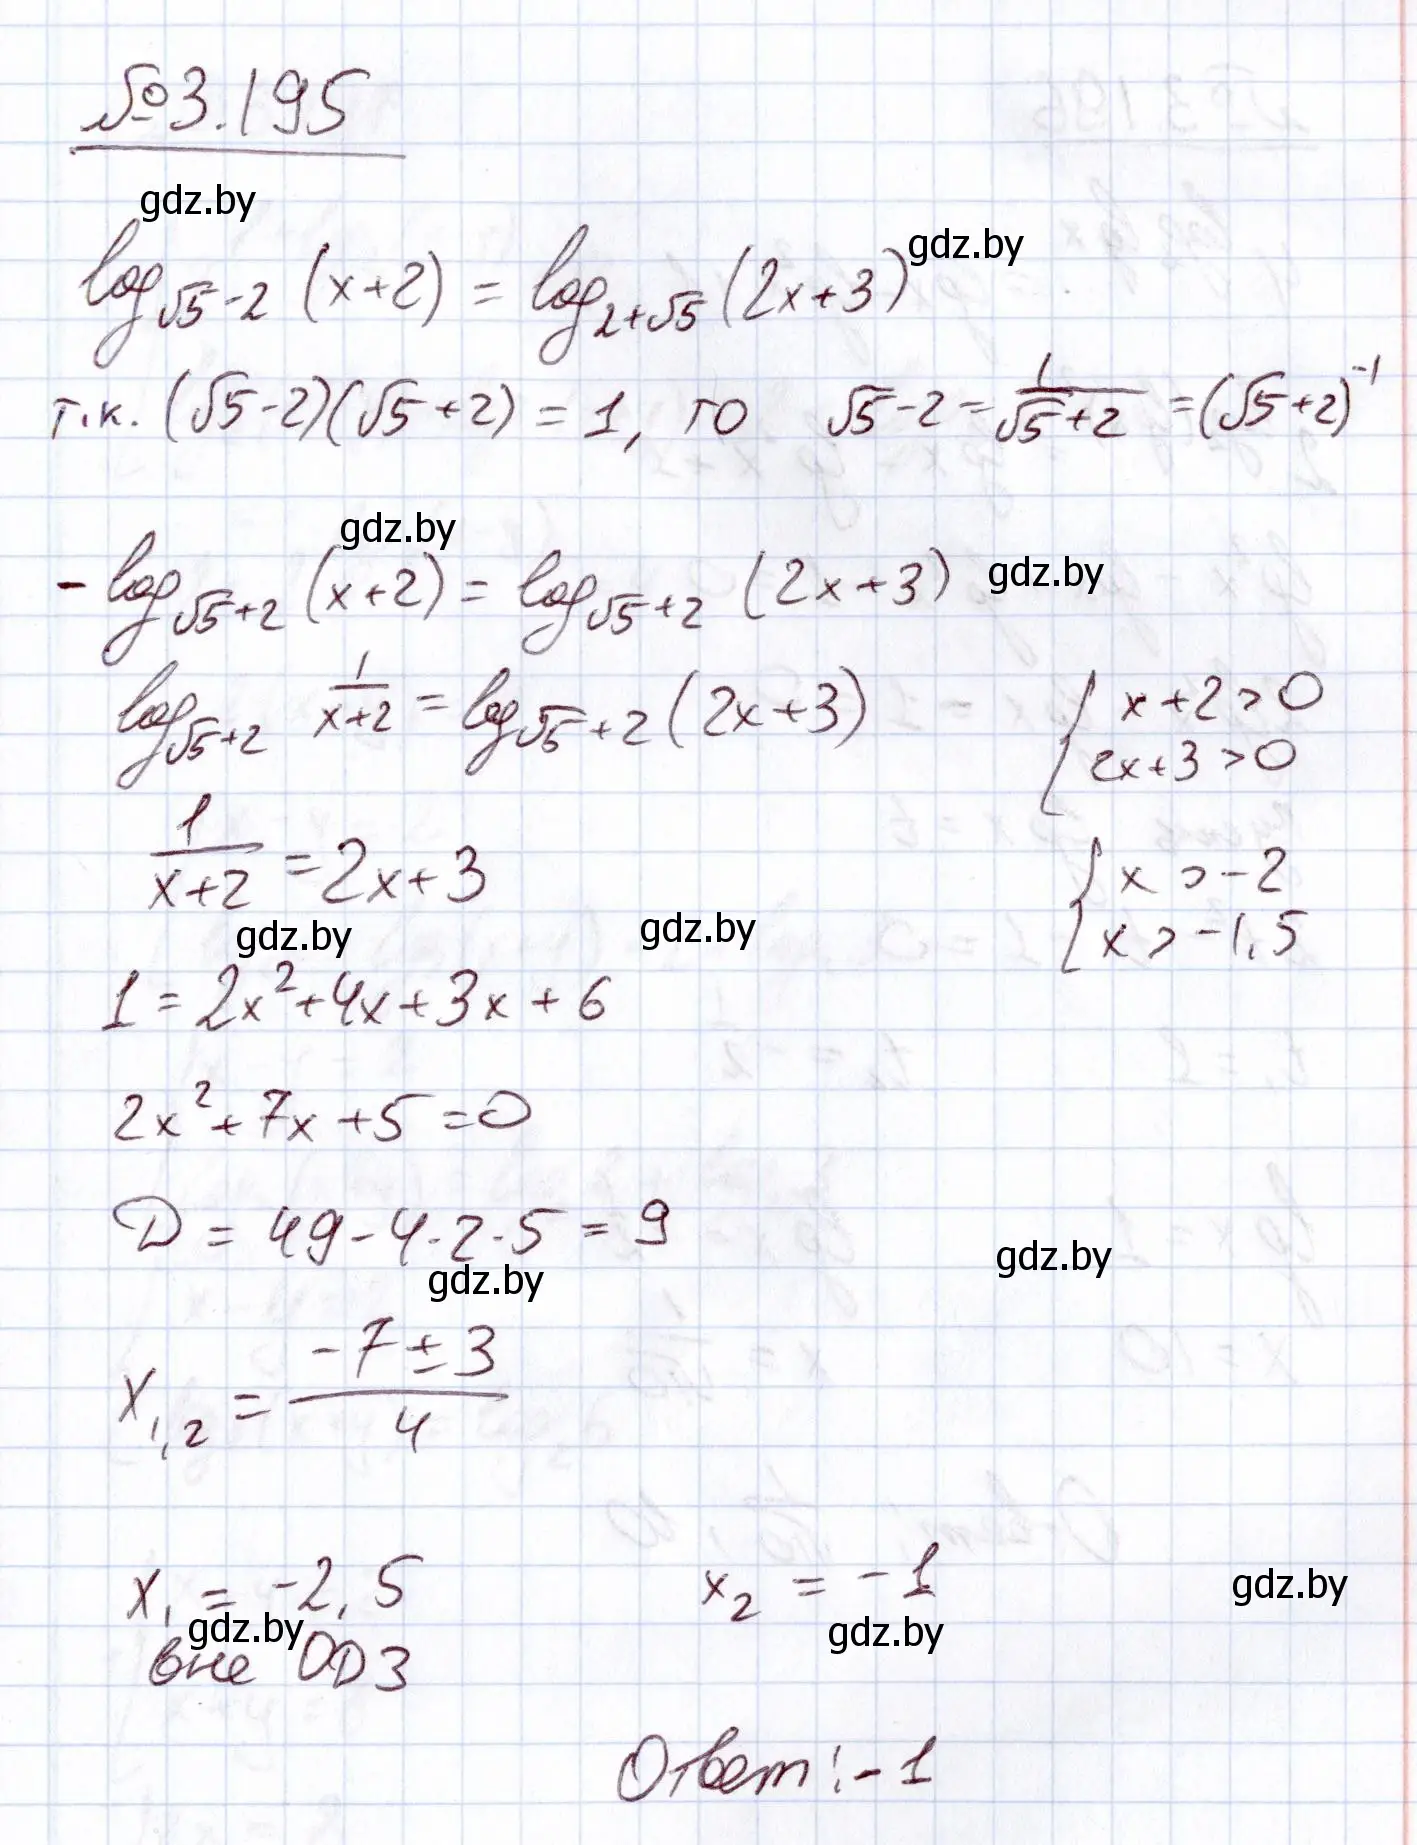 №3.195
gdz.by
log√5-2 (x+2) = log2+√5 (2x+3) gdz.by
т.к. (√5-2)(√5+2) = 1, то √5-2 = 1/(√5+2) = (√5+2)^-1
gdz.by
-log√5+2 (x+2) = log√5+2 (2x+3) gdz.by
log√5+2 1/(x+2) = log√5+2 (2x+3)
{ x+2>0
2x+3>0
1/(x+2) = 2x+3
{ x > -2
x > -1,5
gdz.by gdz.by
1 = 2x²+4x+3x+6
2x²+7x+5=0
D = 49-4·2·5 = 9
gdz.by gdz.by
x1,2 = (-7±3)/4
x1 = -2,5 x2 = -1 gdz.by
gdz.by gdz.by
вне ОДЗ
Ответ: -1